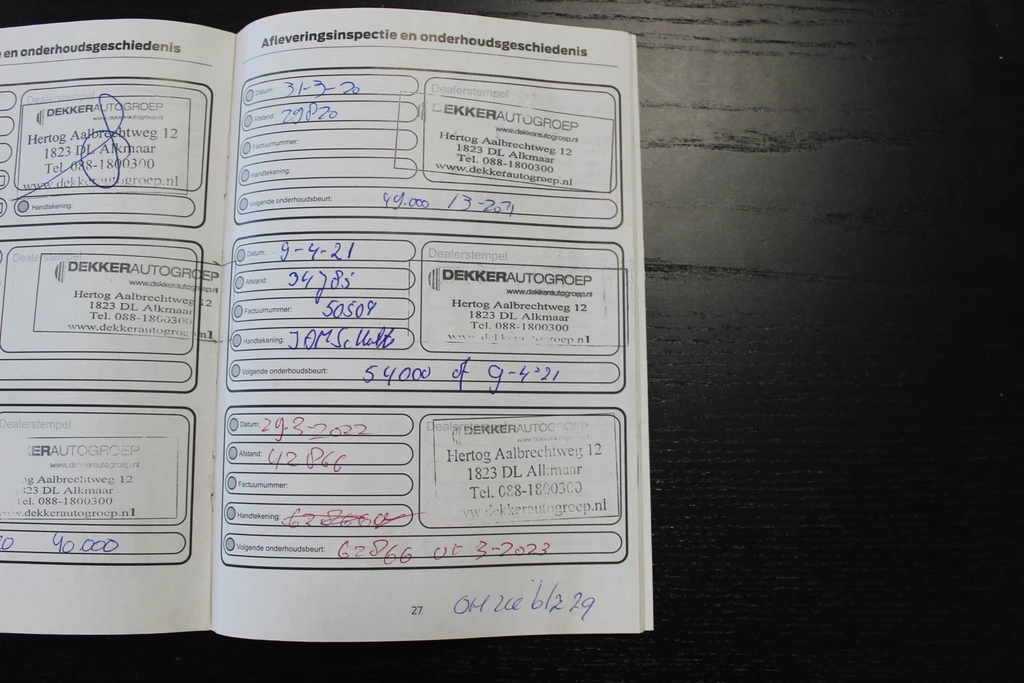 e en onderhoudsgeschiedenis
Dealerstempel
DEKKERAUTOGROEP
www.dekkerautogroep.nl
Hertog Aalbrechtweg 12
1823 DL Alkmaar
Tel. 088-1800300
www.dekkerautogroep.nl
Handtekening:
Dealerstempel
DEKKERAUTOGROEP
www.dekkerautogroep.nl
Hertog Aalbrechtweg 12
1823 DL Alkmaar
Tel. 088-1800300
www.dekkerautogroep.nl
Dealerstempel
KERAUTOGROEP
www.dekkerautogroep.nl
og Aalbrechtweg 12
823 DL Alkmaar
Tel. 088-1800300
www.dekkerautogroep.nl
40.000
Afleveringsinspectie en onderhoudsgeschiedenis
Datum: 31-3-20
Afstand: 29820
Factuurnummer:
Handtekening:
Volgende onderhoudsbeurt: 49.000 /3-2021
Dealerstempel
DEKKERAUTOGROEP
www.dekkerautogroep.nl
Hertog Aalbrechtweg 12
1823 DL Alkmaar
Tel. 088-1800300
www.dekkerautogroep.nl
Datum: 9-4-21
Afstand: 34785
Factuurnummer: 50504
Handtekening:
Volgende onderhoudsbeurt: 54000 of 9-4-21
Dealerstempel
DEKKERAUTOGROEP
www.dekkerautogroep.nl
Hertog Aalbrechtweg 12
1823 DL Alkmaar
Tel. 088-1800300
www.dekkerautogroep.nl
Datum: 29-3-2022
Afstand: 42866
Factuurnummer:
Handtekening:
Volgende onderhoudsbeurt: 62866 of 3-2023
Dealerstempel
DEKKERAUTOGROEP
Hertog Aalbrechtweg 12
1823 DL Alkmaar
Tel. 088-1800300
www.dekkerautogroep.nl
27
OH zie blz 29